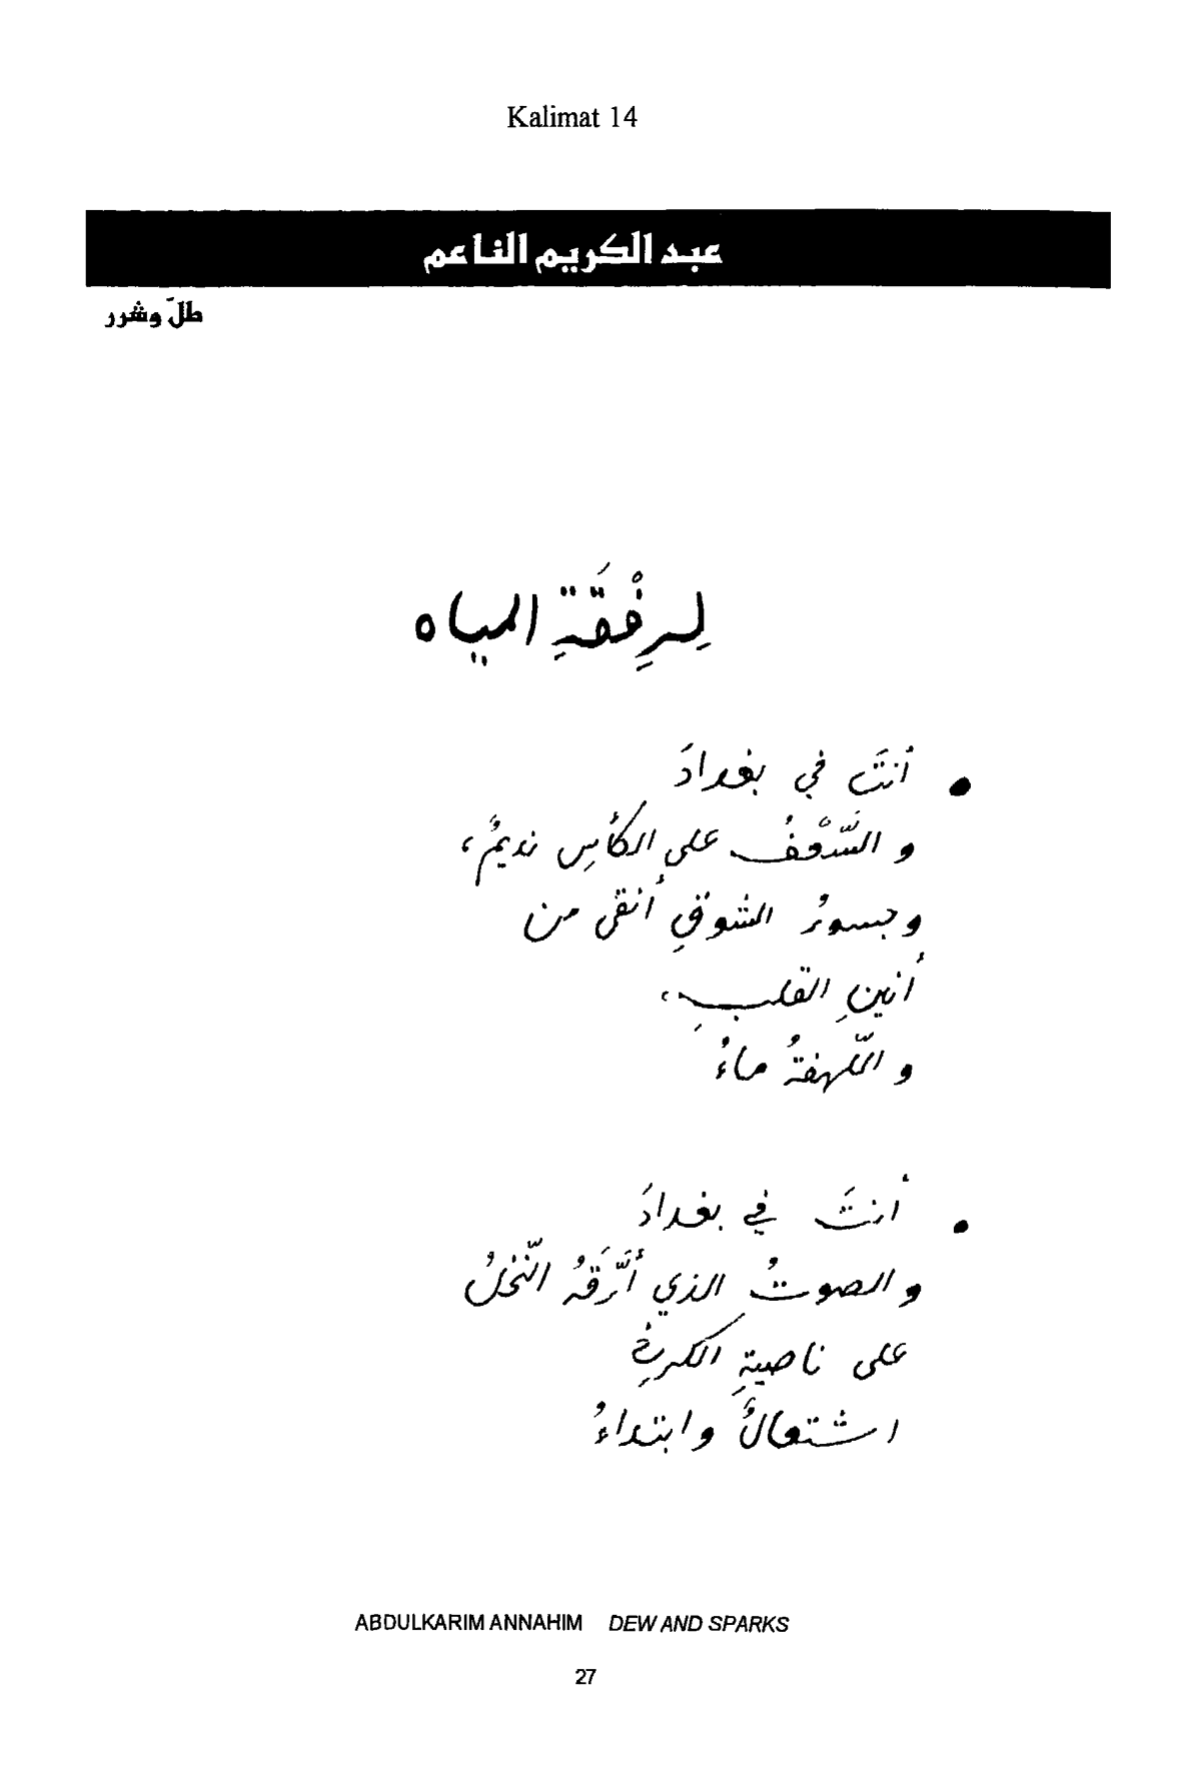 Kalimat 14
عبد الكريم الناعم
طلّ وشرر
لِرِفْقَةِ المياه
• أنتَ في بغدادَ
و السَّعْفُ على الكأسِ نديمٌ،
وجسورُ الشوقِ أنقى من
أنينِ القلبِ،
و اللّهفةُ ماءُ
• أنتَ في بغدادَ
و الصوتُ الذي أرَّقَهُ النّخلُ
على ناصيةِ الكرخِ
اشتعالٌ وابتداءُ
ABDULKARIM ANNAHIM DEW AND SPARKS
27